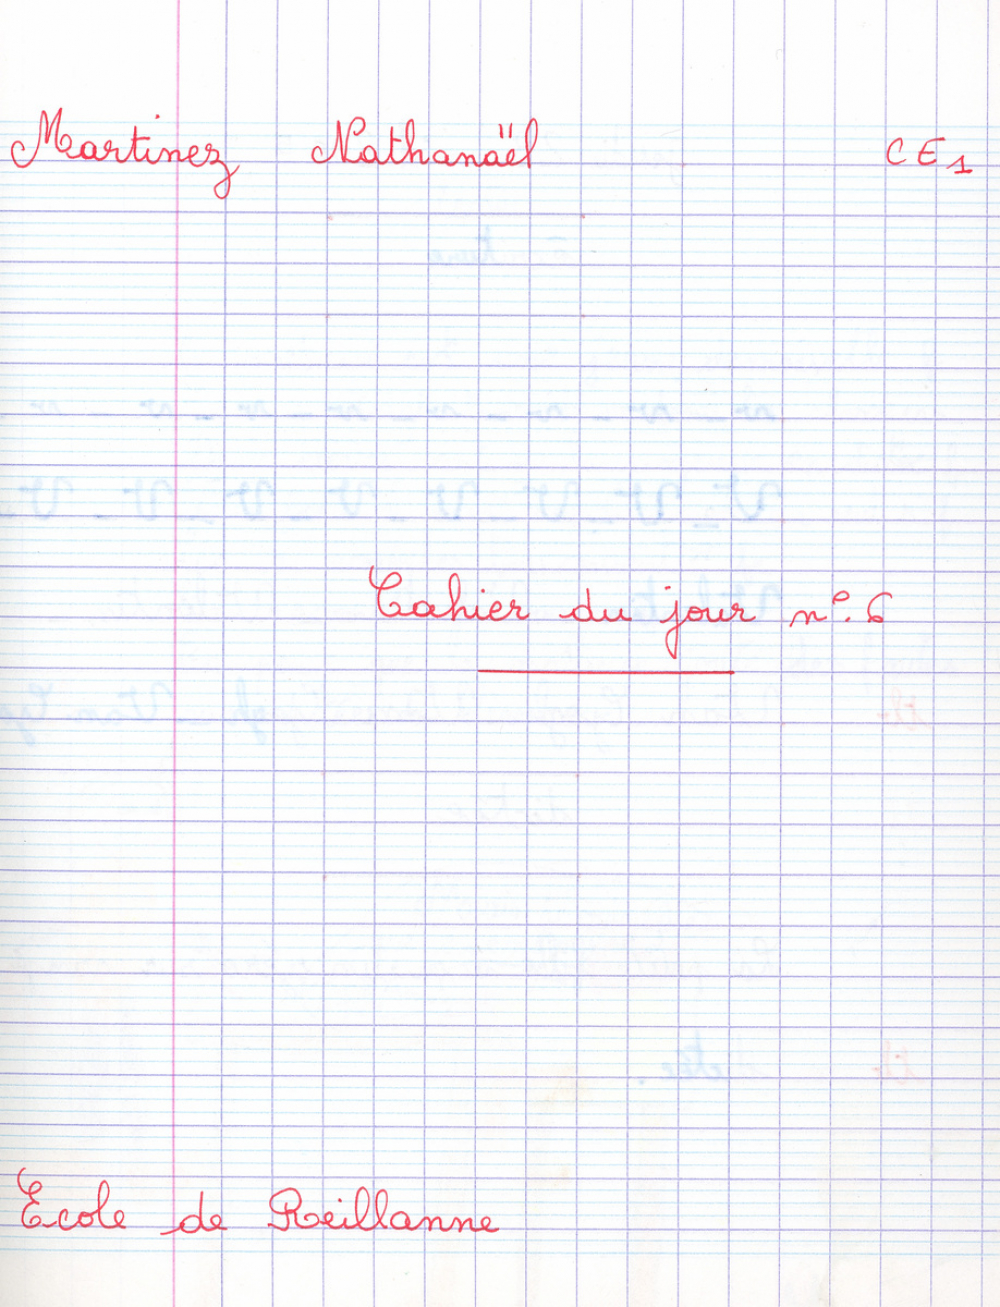 Martinez Nathanaël CE1
Cahier du jour n°.6
Ecole de Reillanne